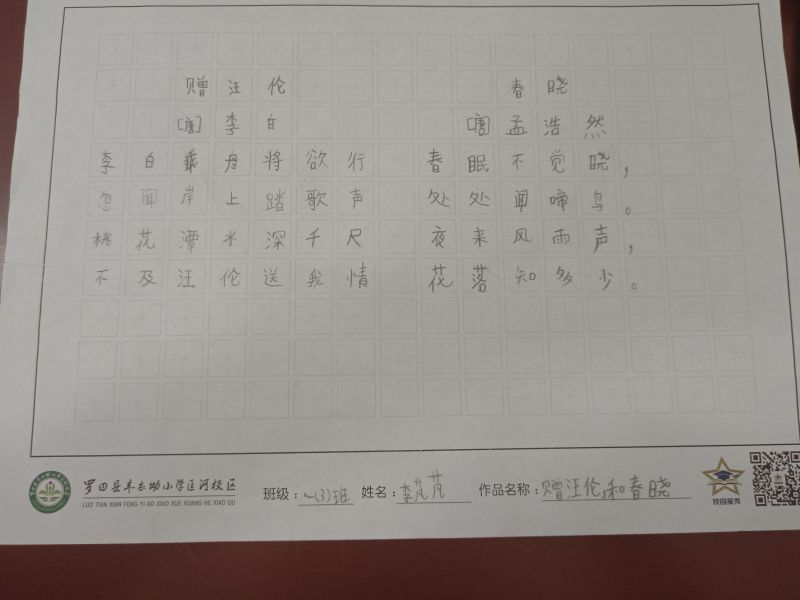 赠汪伦
[唐]李白
李白乘舟将欲行
忽闻岸上踏歌声
桃花潭水深千尺
不及汪伦送我情
春晓
[唐]孟浩然
春眠不觉晓，
处处闻啼鸟。
夜来风雨声，
花落知多少。
罗田县丰衣坳小学匡河校区
LUO TIAN XIAN FENG YI AO XIAO XUE KUANG HE XIAO QU
班级：一(3)班 姓名：李芃芃 作品名称：赠汪伦,和春晓
校园星秀